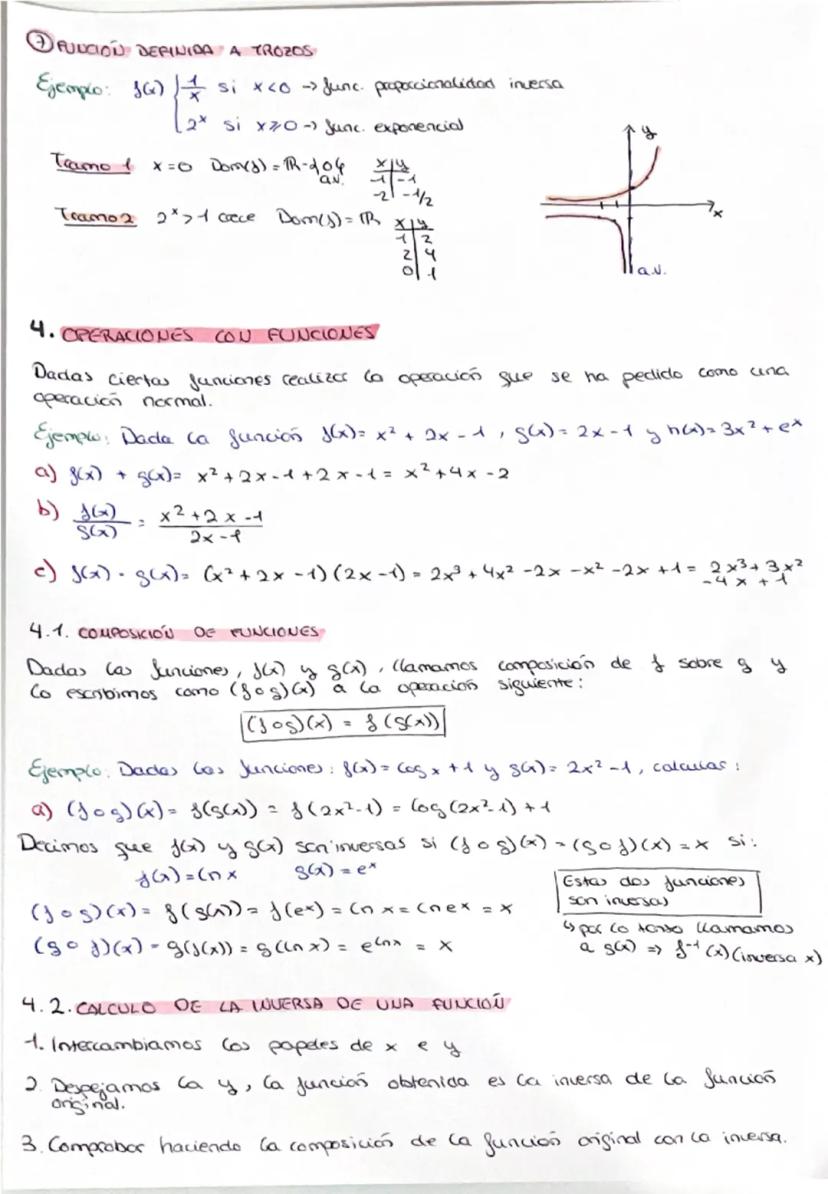 ⑦ FUNCIÓN DEFINIDA A TROZOS
Ejemplo: f(x) { 1/x si x<0 → func. proporcionalidad inversa
2ˣ si x≥0 → func. exponencial
Tramo 1 x=0 Dom(f)=ℝ-{0} x y
a.v. -1 -1
-2 -1/2
Tramo 2 2ˣ>1 crece Dom(f)=ℝ x y
1 2
2 4
0 1
y
x
a.v.
4. OPERACIONES CON FUNCIONES
Dadas ciertas funciones realizar la operación que se ha pedido como una
operación normal.
Ejemplo: Dada la función f(x)= x² + 2x - 1, g(x)= 2x - 1 y h(x)= 3x² + eˣ
a) f(x) + g(x)= x² + 2x - 1 + 2x - 1 = x² + 4x - 2
b) f(x)/g(x) = (x² + 2x - 1)/(2x - 1)
c) f(x) · g(x)= (x² + 2x - 1)(2x - 1) = 2x³ + 4x² - 2x - x² - 2x + 1 = 2x³ + 3x²
- 4x + 1
4.1. COMPOSICIÓN DE FUNCIONES
Dadas las funciones, f(x) y g(x), llamamos composición de f sobre g y
lo escribimos como (f∘g)(x) a la operación siguiente:
(f∘g)(x) = f(g(x))
Ejemplo: Dadas las funciones: f(x)= log x + 1 y g(x)= 2x² - 1, calcular:
a) (f∘g)(x)= f(g(x)) = f(2x²-1) = log(2x²-1) + 1
Decimos que f(x) y g(x) son inversas si (f∘g)(x) = (g∘f)(x) = x si:
f(x) = ln x g(x) = eˣ
(f∘g)(x)= f(g(x)) = f(eˣ) = ln x = ln eˣ = x
(g∘f)(x) = g(f(x)) = g(ln x) = e^(ln x) = x
Estas dos funciones
son inversas
↳ por lo tanto llamamos
a g(x) ⇒ f⁻¹(x) (inversa x)
4.2. CALCULO DE LA INVERSA DE UNA FUNCIÓN
1. Intercambiamos los papeles de x e y
2. Despejamos la y, la función obtenida es la inversa de la función
original.
3. Comprobar haciendo la composición de la función original con la inversa.